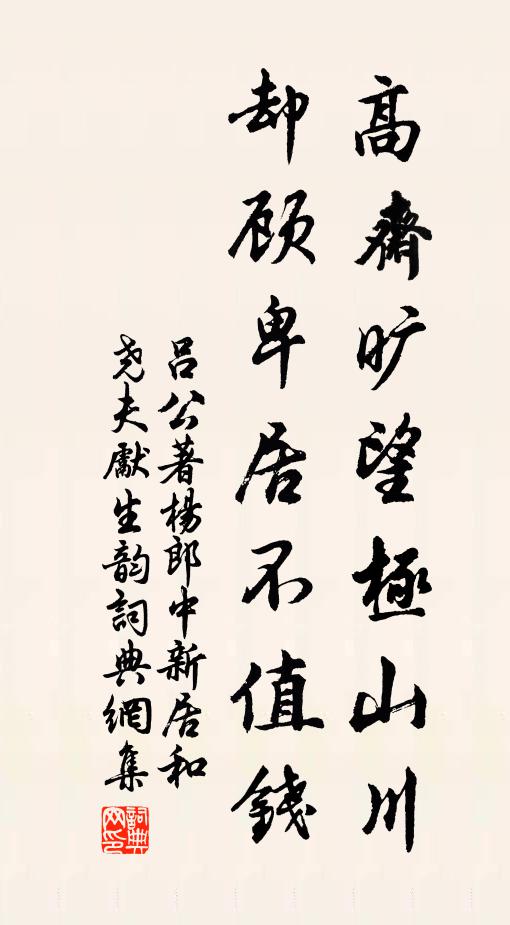 高齋旷望極山川
却顾卑居不值錢
呂公著楊郎中新居和
尧夫獻生韵詞典網集
詞典